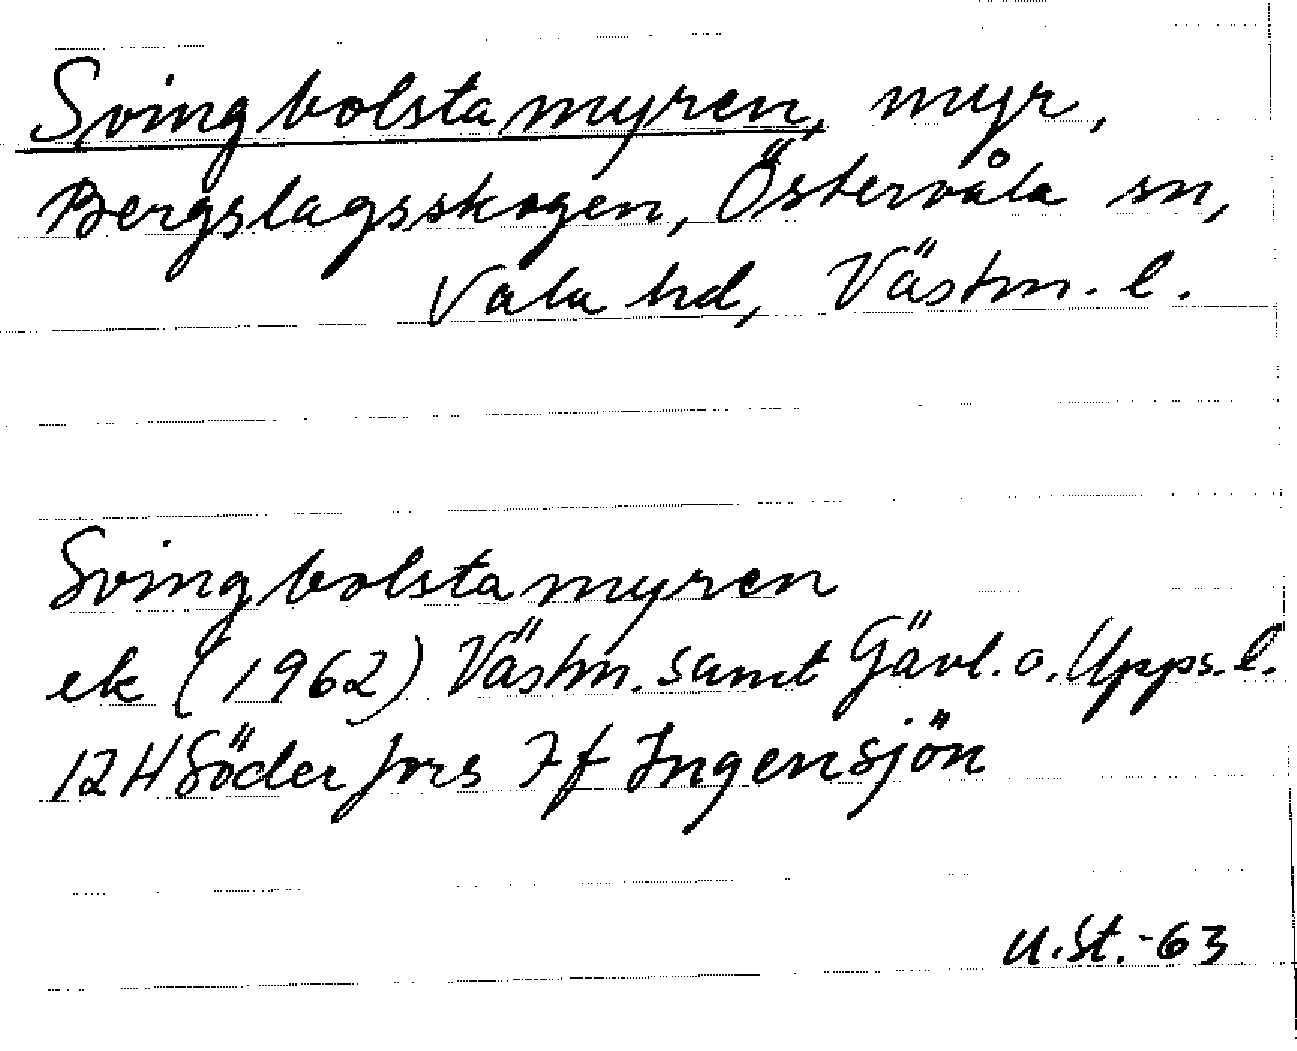 Svingbolstamyren, myr,
Bergslagsskogen, Östervåla sn,
Våla hd, Västm. l.
Svingbolstamyren
ek (1962) Västm. samt Gävl. o. Upps. l.
12H Söderfors 7f Ingensjön
U.St.-63